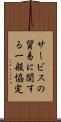 サービスの
貿易に関す
る一般協定